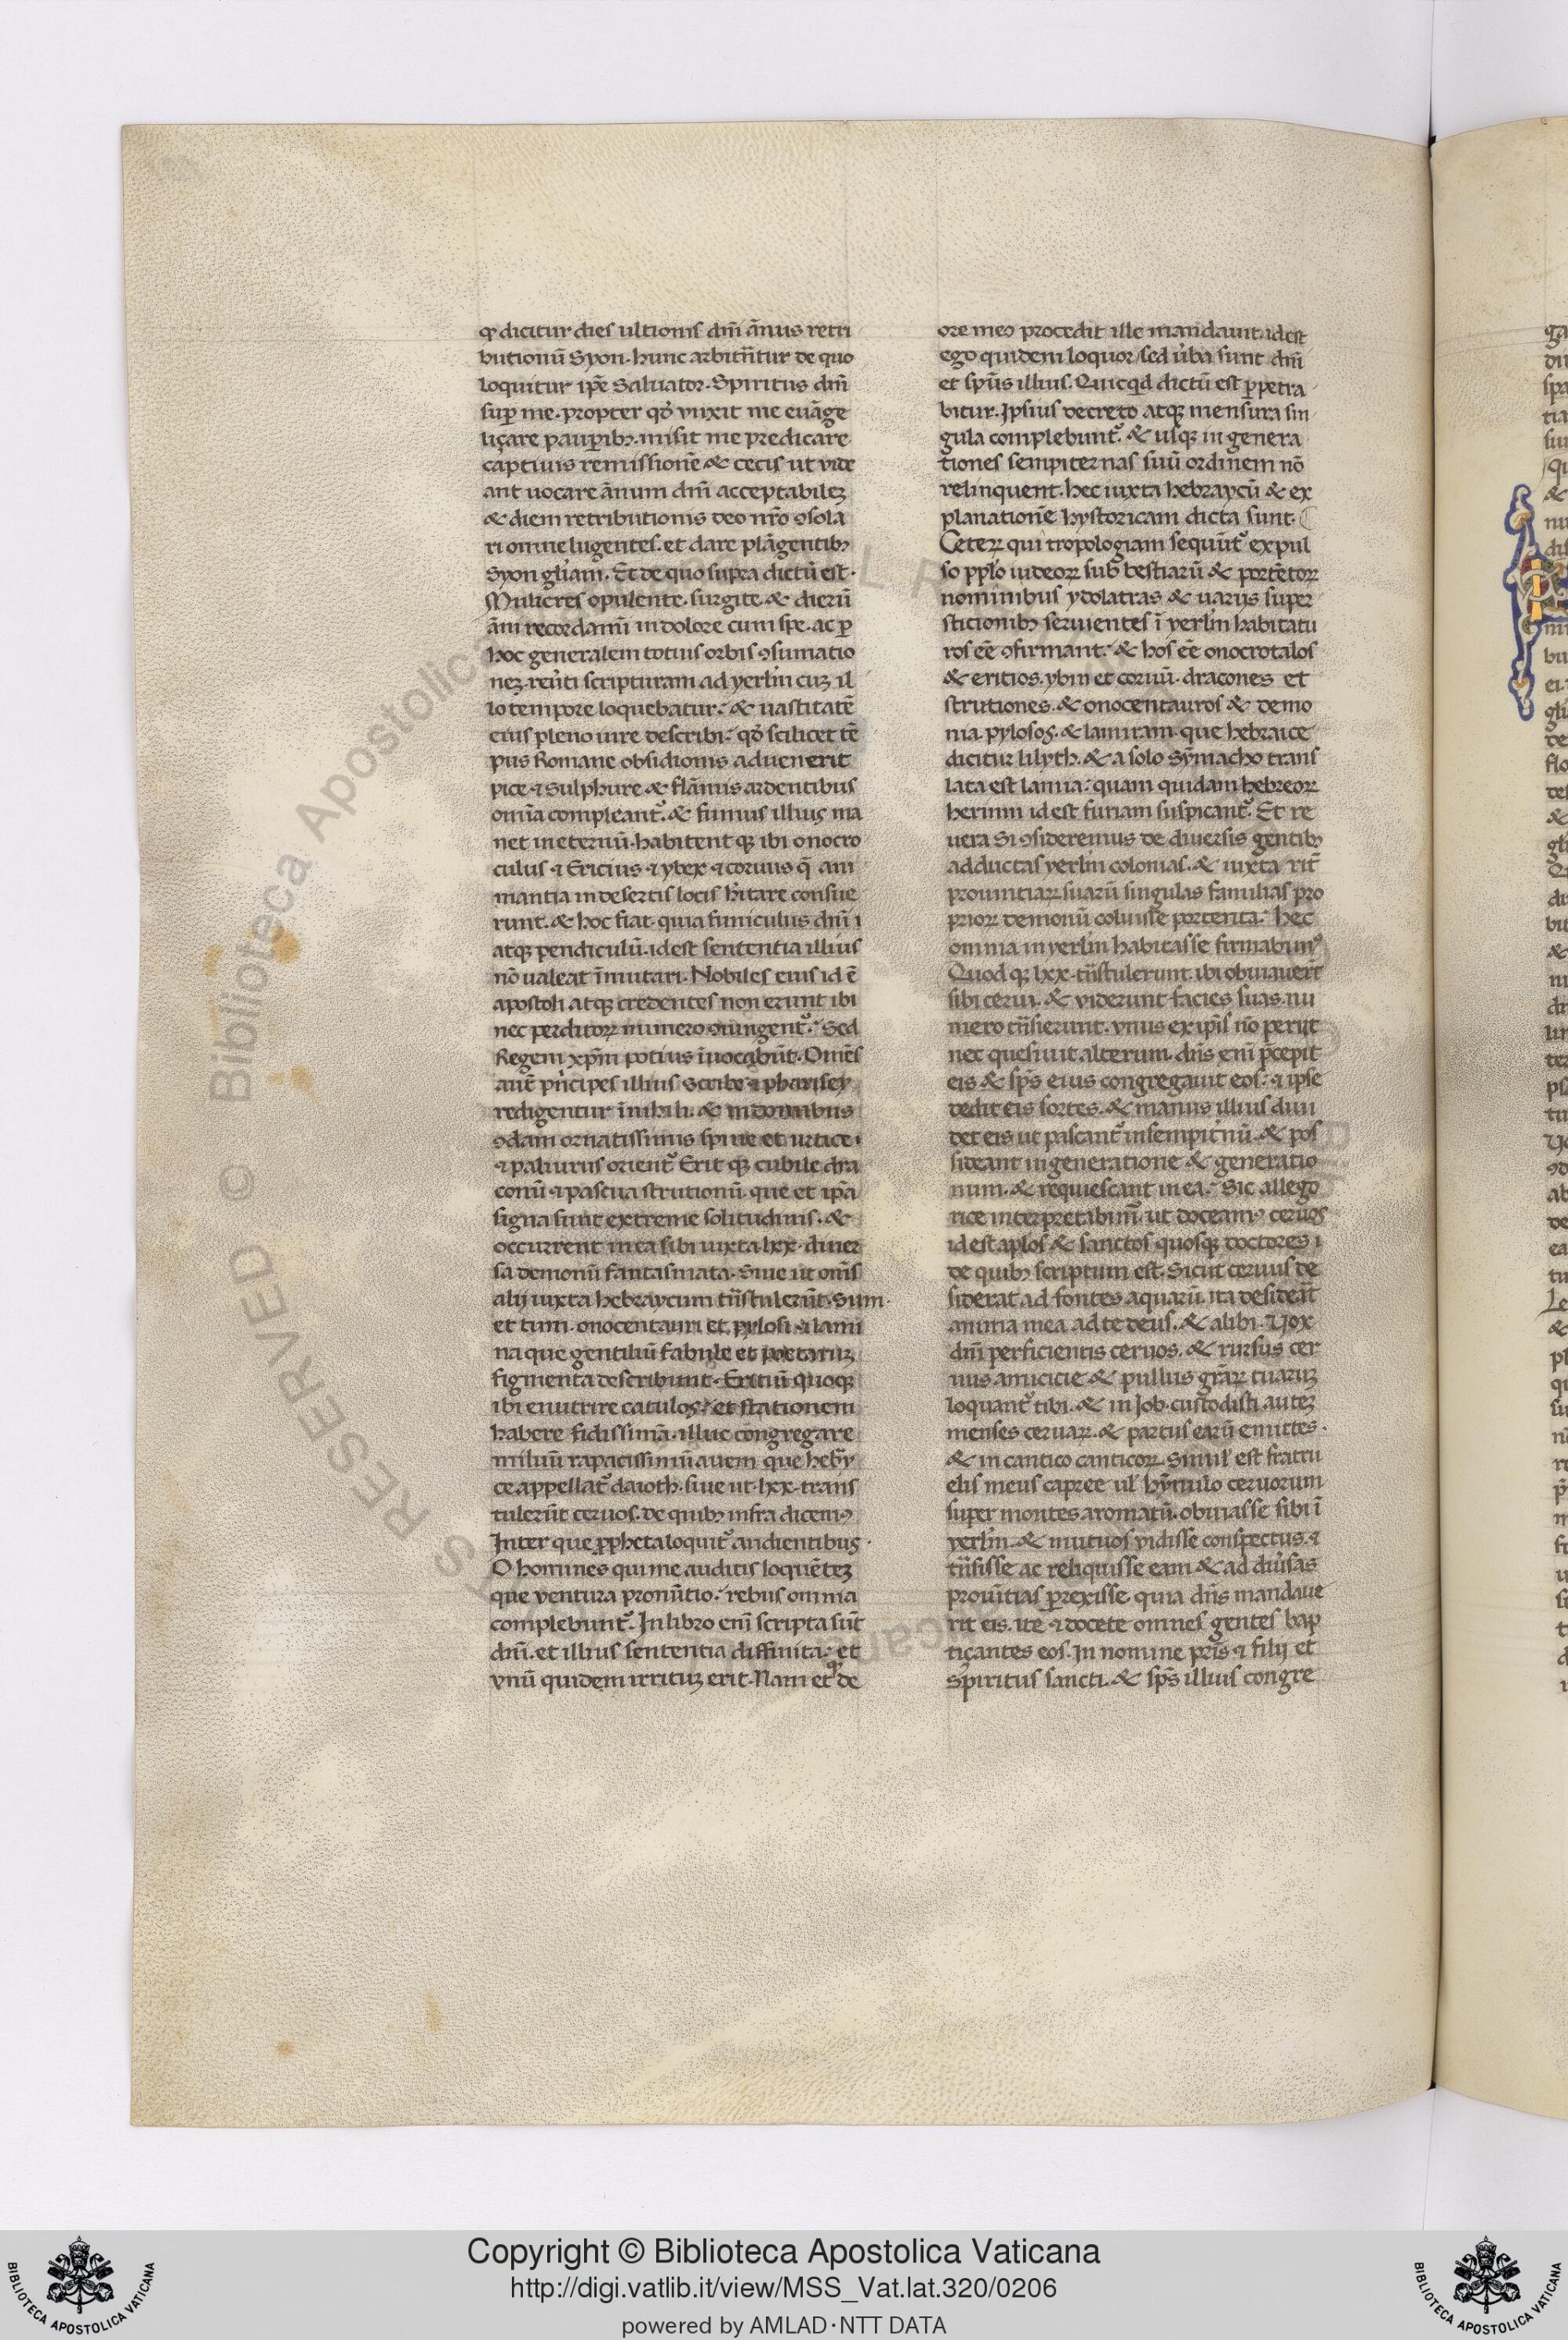 qr dicitur dies ultionis dn̄i ānus retri
butionū Syon. hunc arbitrn̄tur de quo
loquitur ip̄e Saluator. Spiritus dn̄i
sup̱ me. propter qd̓ vnxit me euāge
liçare paup̱ibꝫ. misit me predicare
captiuis remissionē & cecis ut vide
ant uocare ānum dn̄i acceptabileꝫ
& diem retributionis deo nr̄o ꝯsola
ri omne lugentes. et dare plāgentibꝫ
Syon gl̄iam. Et de quo supra dictū est.
Mulieres opulente. surgite. & dierū
āni recordamī in dolore cum spe. ac ꝑ
hoc generalem totius orbis ꝯsumatio
neꝫ. reu̓ti scripturam ad yerl̄m cuꝫ il
lo tempore loquebatur. & uastitatē
eius pleno iure describi. qd̓ scilicet tē
pus Romane obsidionis aduenerit
pice & Sulphure & flāmis ardentibus
om̄ia compleant᷑. & fumus illius ma
net in eternū. habitent qꝫ ibi onocro
culus & Ericius & ybex & coruus q̄ ani
mantia in desertis locis hītare consue
runt. & hoc fiat. quia funiculus dn̄i ı
atqꝫ pendiculū. id est sententia illius
nō ualeat īmutari. Nobiles eius id ē
apostoli atqꝫ credentes non erunt ibi
nec perditoꝝ numero ꝯiungent᷑. Sed
Regem xp̄m potius īuocabūt. Omēs
aut̄ pn̓cipes illius Scribe & pharisey
redigentur ī nihili. & in domibus
qdam ornatissimis spine et urtice ı
& paliurus orient᷑. Erit qꝫ cubile dra
conū & pascua strutionū. que et ip̄a
signa sunt extreme solitudinis. &
occurrent in ea sibi iuxta lxx. diuer
sa demonū fantasmata. Siue ut om̄s
alij iuxta hebraycum trn̄stulerūt. Sum.
et tum. onocentauri et pylosi & lami
na que gentiliū fabule et poetaruꝫ
figmenta describunt. Ericiū quoqꝫ
ibi enutrire catulos. et stationem
habere fidissimā. illuc congregare
miluū rapacissimū auem que heb̓y
ce appellat᷑ daioth. siue ut lxx. trans
tulerūt ceruos. de quibꝫ infra dicemꝰ
Inter que ꝓpheta loquit᷑ audientibus.
O homines qui me auditis loquēteꝫ
que ventura pronūtio. rebus omnia
complebunt᷑. In libro enī scripta sūt
dn̄i. et illius sententia diffinita. et
vnū quidem irrituꝫ erit. Nam et qr de
ore meo procedit ille mandauit. id est
ego quidem loquor / sed u̓ba sunt dn̄i
et sp̄us illius. Quicqd dictū est ꝑpetra
bitur. Ipsius decreto atqꝫ mensura sin
gula complebunt᷑. & usqꝫ in genera
tiones sempiternas suū ordinem nō
relinquent. hec iuxta hebraycū & ex
planationē hystoricam dicta sunt.
Ceteꝝ qui tropologiam sequūt᷑ expul
so pplo iudeoꝝ sub bestiarū & portētoꝝ
nominibus ydolatras & uarijs super
sticionibꝫ seruientes ī yerl̄m habitatu
ros eē ꝯfirmant. & hos eē onocrotalos
& eritios. ybin et coruū. dracones et
strutiones. & onocentauros & demo
nia. pylosos. & lamiam. que hebraice
dicitur lilyth. & a solo Sȳmacho trans
lata est lamia: quam quidam hebreoꝝ
herinin id est furiam suspicant᷑. Et re
uera Si ꝯsideremus de diuersis gentibꝫ
adductas yerl̄m colonias. & iuxta rit̄
prouintiaꝝ suarū singulas familias pro
prioꝝ demonū coluisse portenta. hec
omnia in yerl̄m habitasse firmabimꝰ
Quod qꝫ lxx. trn̄stulerunt. ibi obuiauert̄
sibi cerui. & viderunt facies suas. nu
mero trn̄sierunt. vnus ex ip̄is nō perijt
nec quesiuit alterum. dn̄s enī p̄cepit
eis & sp̄s eius congregauit eos. & ipse
dedit eis sortes. & manus illius diui
det eis ut pascant᷑ in sempit̓nū. & pos
sideant in generatione & generatio
num. & requiescant in ea. Sic allego
rice interpretabim᷑. ut doceamꝰ ceruos
id est ap̄los & sanctos quosqꝫ doctores ı
de quibꝫ scriptum est. Sicut ceruus de
siderat ad fontes aquarū. ita desiderat̄
anima mea ad te deus. & alibi. Vox
dn̄i perficientis ceruos. & rursus cer
uus amicicie & pullus grāꝝ tuaruꝫ
loquant᷑ tibi. & in Job. custodisti auteꝫ
menses ceruaꝝ. & partus earū emittes.
& in cantico canticoꝝ. Simil̄ est fratru
elis meus capree ul̄ hȳnulo ceruorum
super montes aromatū. obuiasse sibi ī
yerl̄m. & mutuos vidisse conspectus. &
trn̄sisse ac reliquisse eam & ad diu̓sas
prouītias ꝑrexisse. quia dn̄s mandaue
rit eis. ite & docete omnes gentes bap
tiçantes eos. In nomine pr̄is & filij et
Spiritus sancti. & sp̄s illius congre
Copyright © Biblioteca Apostolica Vaticana
http://digi.vatlib.it/view/MSS_Vat.lat.320/0206
powered by AMLAD·NTT DATA
BIBLIOTECA APOSTOLICA VATICANA
BIBLIOTECA APOSTOLICA VATICANA